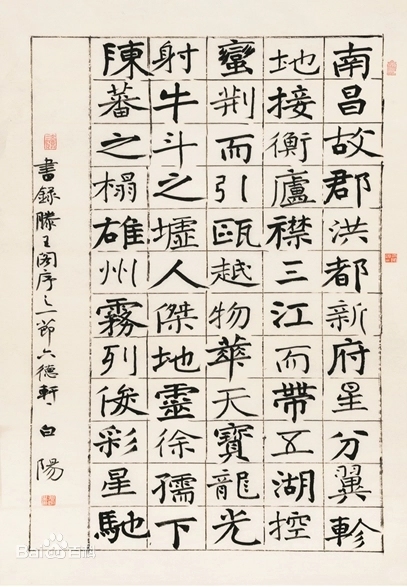 南昌故郡洪都新府星分翼軫
地接衡廬襟三江而帶五湖控
蠻荆而引甌越物華天寶龍光
射牛斗之墟人傑地靈徐孺下
陳蕃之榻雄州霧列俊彩星馳
書錄滕王阁序之一節六德軒白陽
Bai百科